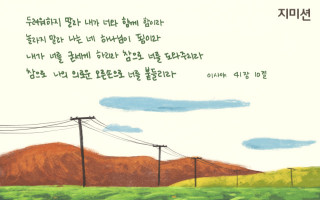 지미션
두려워하지 말라 내가 너와 함께 함이라
놀라지 말라 나는 네 하나님이 됨이라
내가 너를 굳세게 하리라 참으로 너를 도와주리라
참으로 나의 의로운 오른손으로 너를 붙들리라
이사야 41장 10절